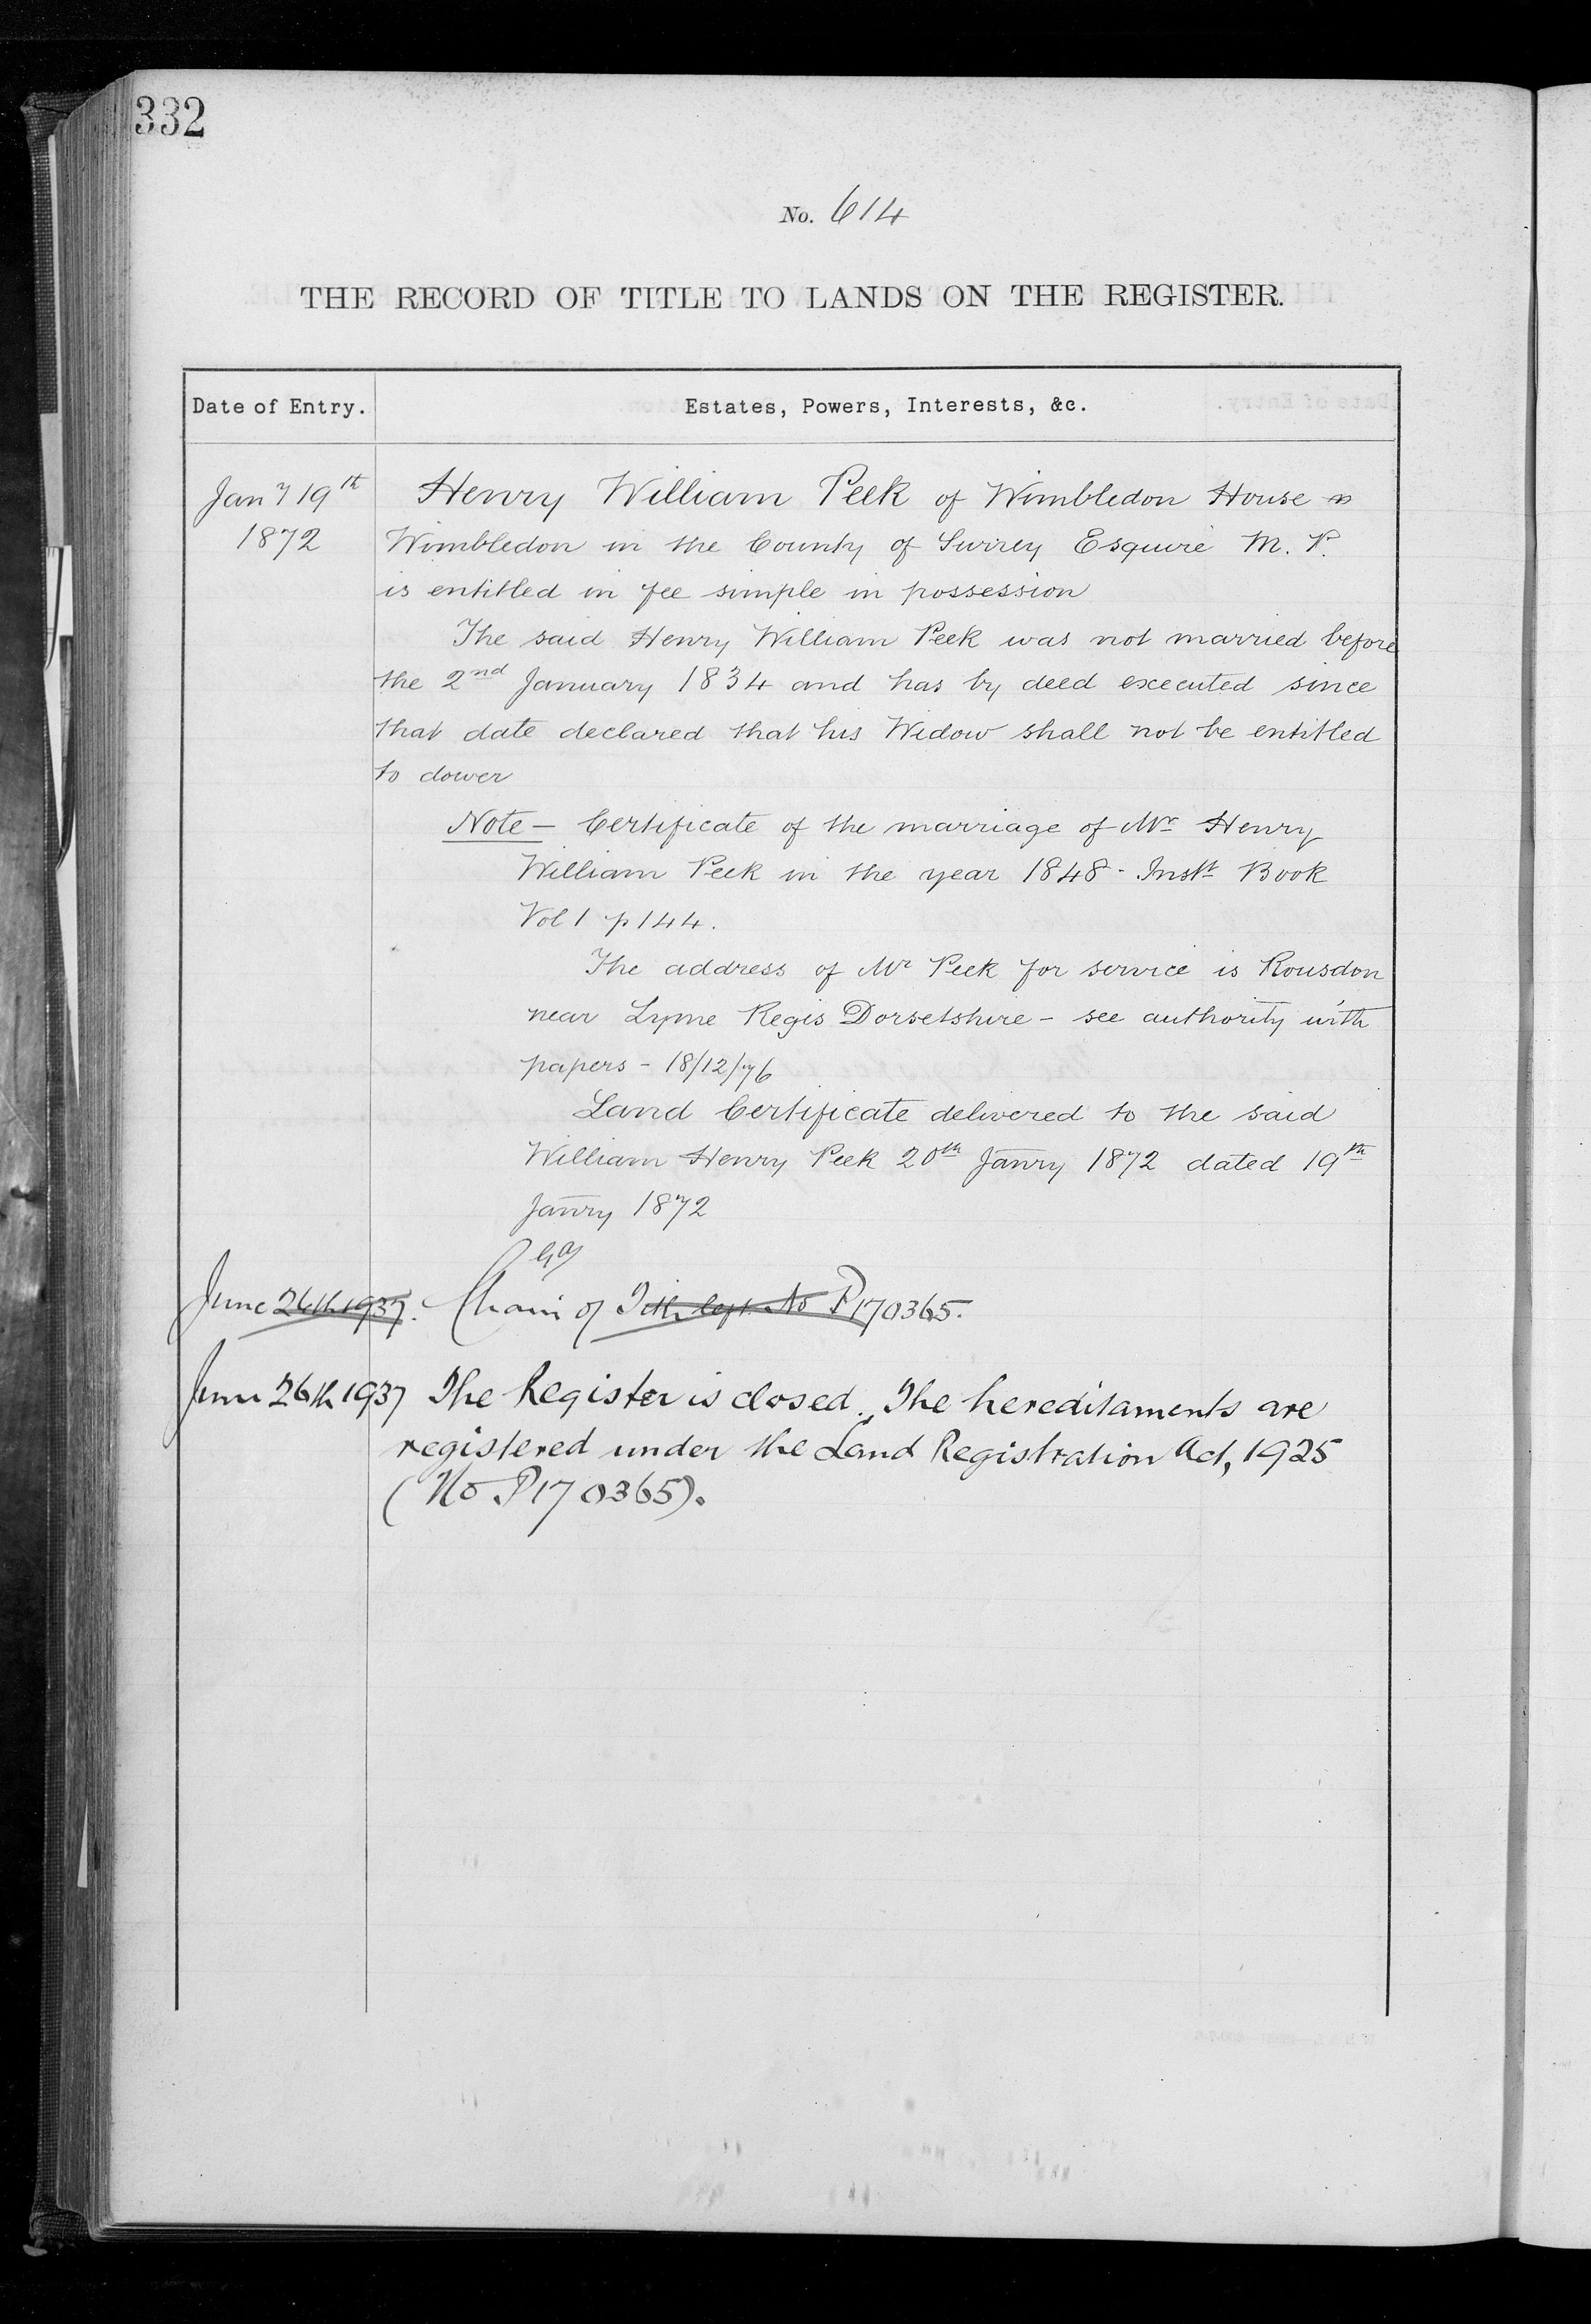 332
No. 614
THE RECORD OF TITLE TO LANDS ON THE REGISTER.
Date of Entry.
Estates, Powers, Interests, &c.
Jany 19th
1872
Henry William Peek of Wimbledon House
Wimbledon in the County of Surrey Esquire M. P.
is entitled in fee simple in possession
The said Henry William Peek was not married before
the 2nd January 1834 and has by deed executed since
that date declared that his Widow shall not be entitled
to dower
Note – Certificate of the marriage of Mr Henry
William Peek in the year 1848 - Instt Book
Vol 1 p 144.
The address of Mr Peek for service is Rousdon
near Lyme Regis Dorsetshire – see authority with
papers – 18/12/76
Land Certificate delivered to the said
William Henry Peek 20th Janry 1872 dated 19th
Janry 1872
June 26th 1937. Chain of Title No P170365.
June 26th 1937 The Register is closed. The hereditaments are
registered under the Land Registration Act, 1925
(No P170365).